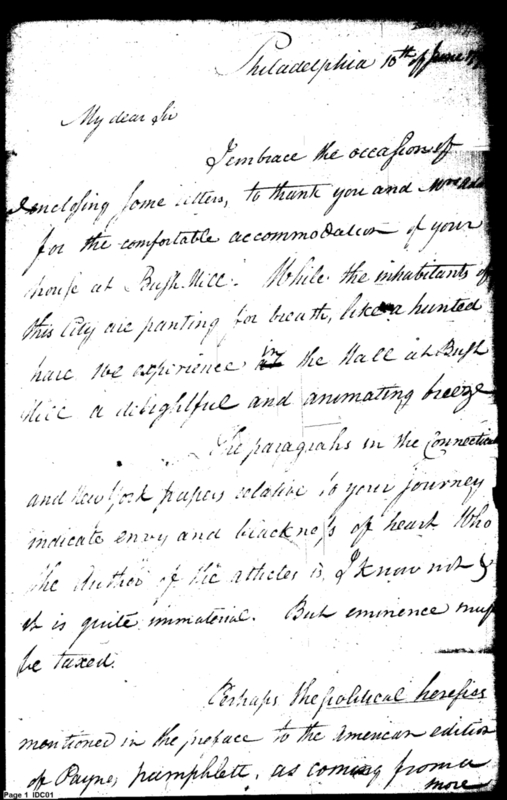 Philadelphia 10th of June 17
My dear Sir
I embrace the occasion of
enclosing some letters, to thank you and Mrs Ada
for the comfortable accommodation of your
house at Bush-Hill. While the inhabitants of
this City are panting for breath, like a hunted
hare we experience in the Hall at Bush
Hill a delightful and animating breeze
The paragrahs in the Connecticut
and New York papers relative to your journey
indicate envy and blackness of heart Who
the Author of the articles is, I know not;
it is quite immaterial. But eminence must
be taxed.
Perhaps the political heresies
mentioned in the preface to the American edition
of Paynes pamphlett, as coming from a
more
Page 1 IDC01